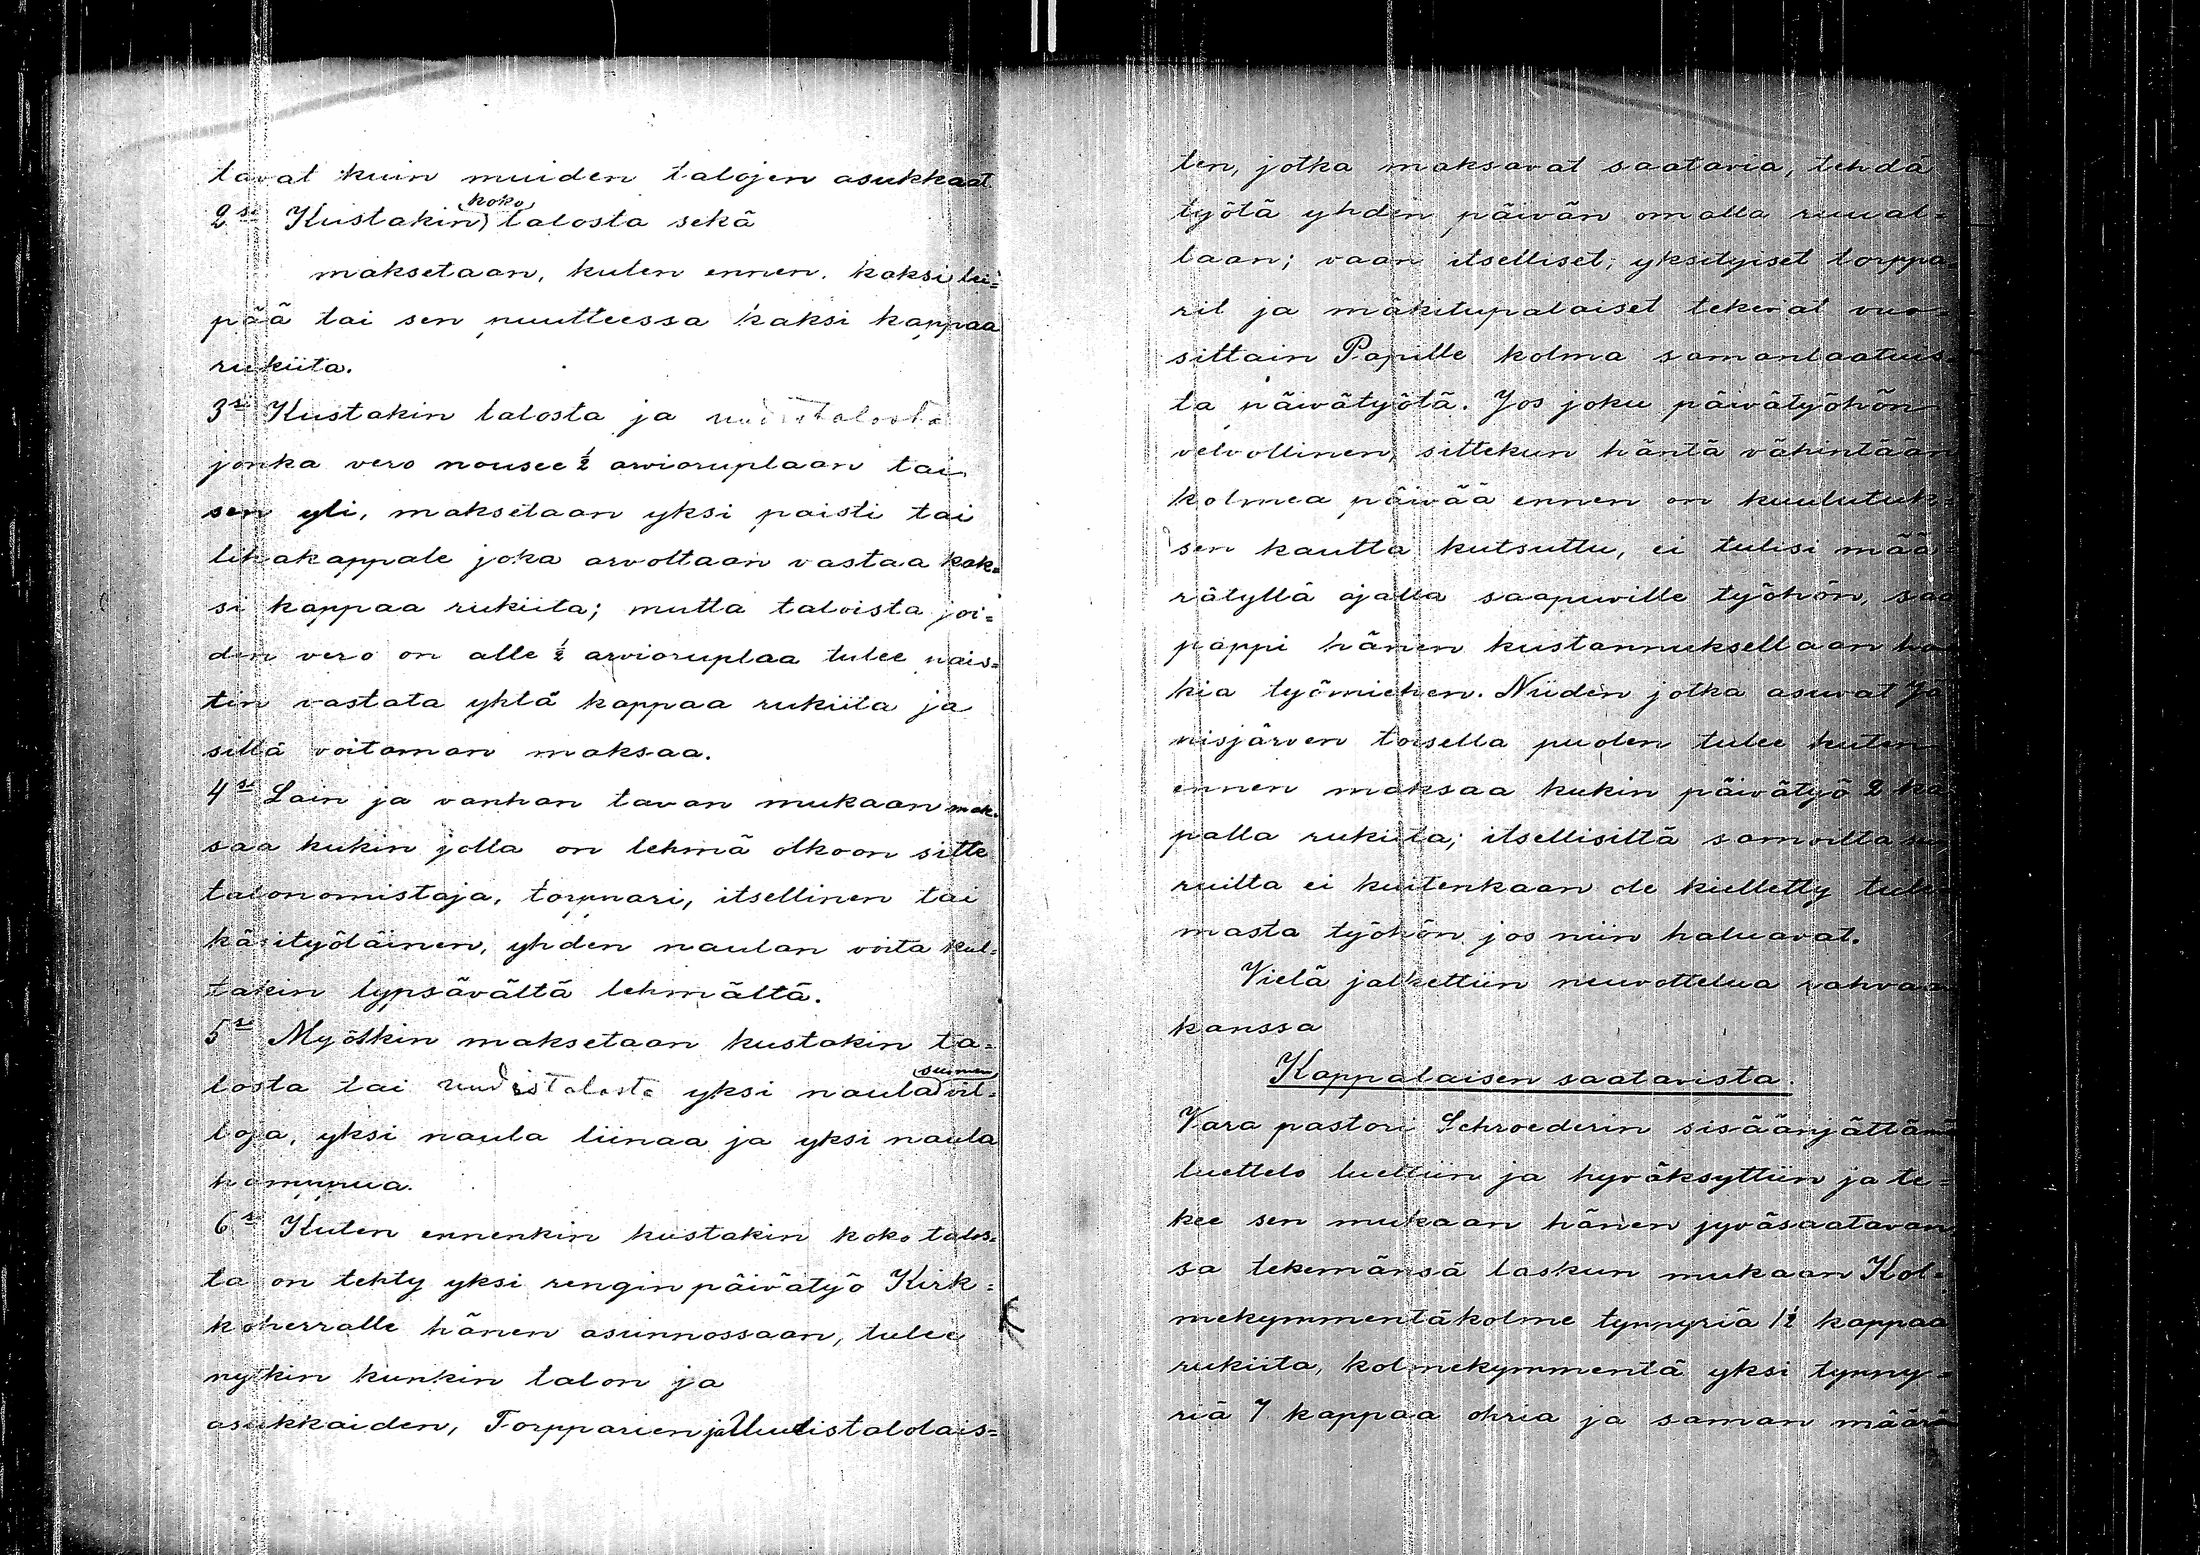 tavat kuin muiden talojen asukkaat.
2si Kustakin koko talosta sekä
maksetaan, kuten ennen, kaksi lei=
pää tai sen puutteessa kaksi kappaa
rukiita.
3si Kustakin talosta ja uudistalosta
jonka vero nousee ½ arvioruplaan tai
sen yli, maksetaan yksi paisti tai
lihakappale joka arvoltaan vastaa kak=
si kappaa rukiita; mutta taloista joi=
den vero on alle ½ arvioruplaa tulee pais=
tin vastata yhtä kappaa rukiita ja
sillä voitaman maksaa.
4si Lain ja vanhan tavan mukaan mak=
saa kukin jolla on lehmä olkoon sitte
talonomistaja, torppari, itsellinen tai
käsityöläinen, yhden naulan voita kul=
takin lypsävältä lehmältä.
5si Myöskin maksetaan kustakin ta=
losta tai uudistalosta yksi naula suomen vil=
loja, yksi naula liinaa ja yksi naula
hamppua.
6si Kuten ennenkin kustakin koko talos=
ta on tehty yksi rengin päivätyö Kirk=
koherralle hänen asunnossaan, tulee
nytkin kunkin talon ja
asukkaiden, Torpparien ja Uudistalolais=
ten, jotka maksavat saatavia, tehdä
työtä yhden päivän omalla ruual=
laan; vaan itselliset, yksityiset torppa=
rit ja mäkitupalaiset tekevat vuo=
sittain Papille kolma samanlaatuis=
ta päivätyötä. Jos joku päivätyöhön
velvollinen, sittekun häntä vähintään
kolmea päivää ennen on kuulutuk=
sen kautta kutsuttu, ei tulisi mää=
rätyllä ajalla saapuville työhön, saa
pappi hänen kustannuksellaan ha
kia työmiehen. Niiden jotka asuvat Jä
nisjärven toisella puolen tulee kuten
ennen maksaa kukin päivätyö 2 ka
palla rukiita; itsellisiltä samoilta
ruilta ei kuitenkaan ole kielletty tule
masta työhön jos niin haluavat.
Vielä jatkettiin neuvottelua rahvaan
kanssa
Kappalaisen saatavista.
Vara pastori Schroederin sisäänjättämä
luettelo luettiin ja hyväksyttiin ja te=
kee sen mukaan hänen jyväsaatavan
sa tekemänsä laskun mukaan Kol=
mekymmentäkolme tynnyriä 1½ kappaa
rukiita, kolmekymmentä yksi tynny=
riä 7 kappaa ohria ja saman määrä